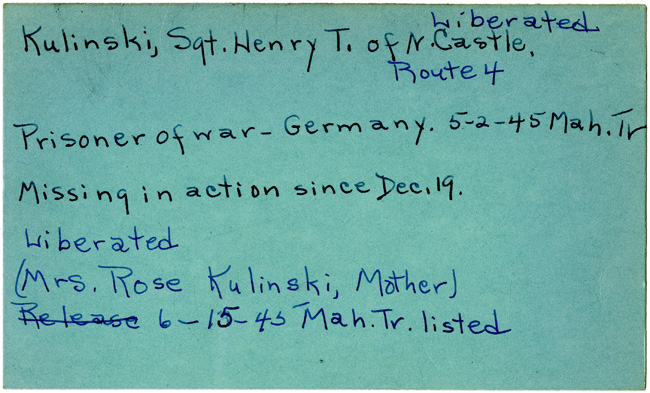 Liberated
Kulinski, Sgt. Henry T. of N. Castle,
Route 4
Prisoner of war - Germany. 5-2-45 Mah. Tr
Missing in action since Dec. 19.
Liberated
(Mrs. Rose Kulinski, Mother)
Release 6-15-45 Mah. Tr. listed